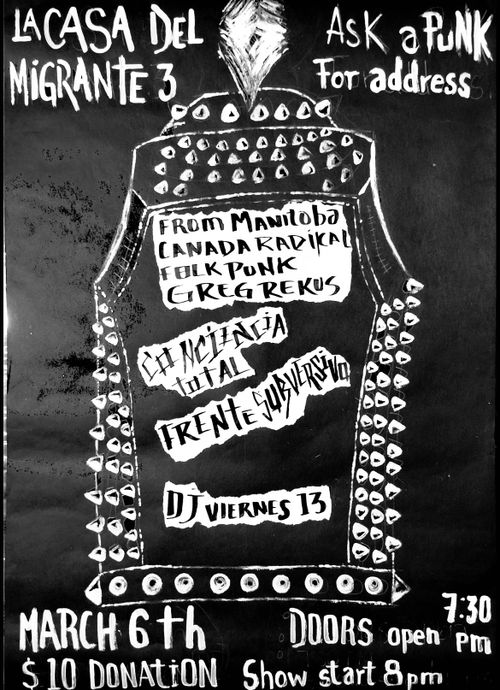 LA CASA DEL
MiGRANTE 3
ASK a PUNK
For address
FROM MANitoba
CANADA RADIKAL
FOLK PUNK
GREG REKUS
CONCIENCIA
totAL
FRENTE SUBVERSIVO
DJ VIERNES 13
MARCH 6th
$10 DONATiON
DOORS open 7:30 pm
Show start 8pm